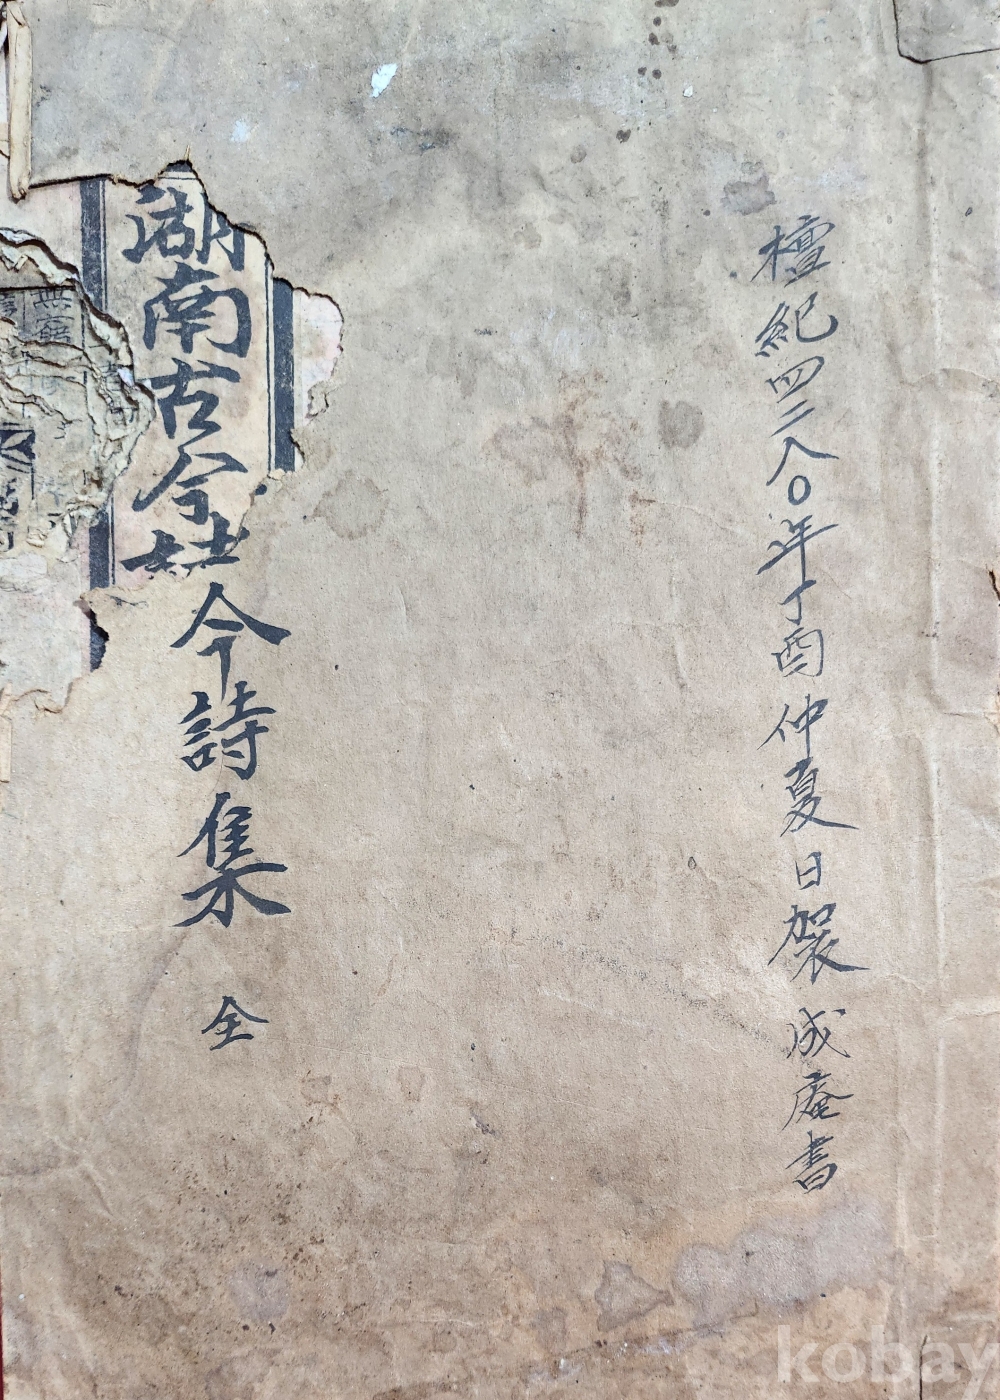 檀紀四二八〇年丁酉仲夏日裝 成庵書
湖南古今
今詩集 全
kobay